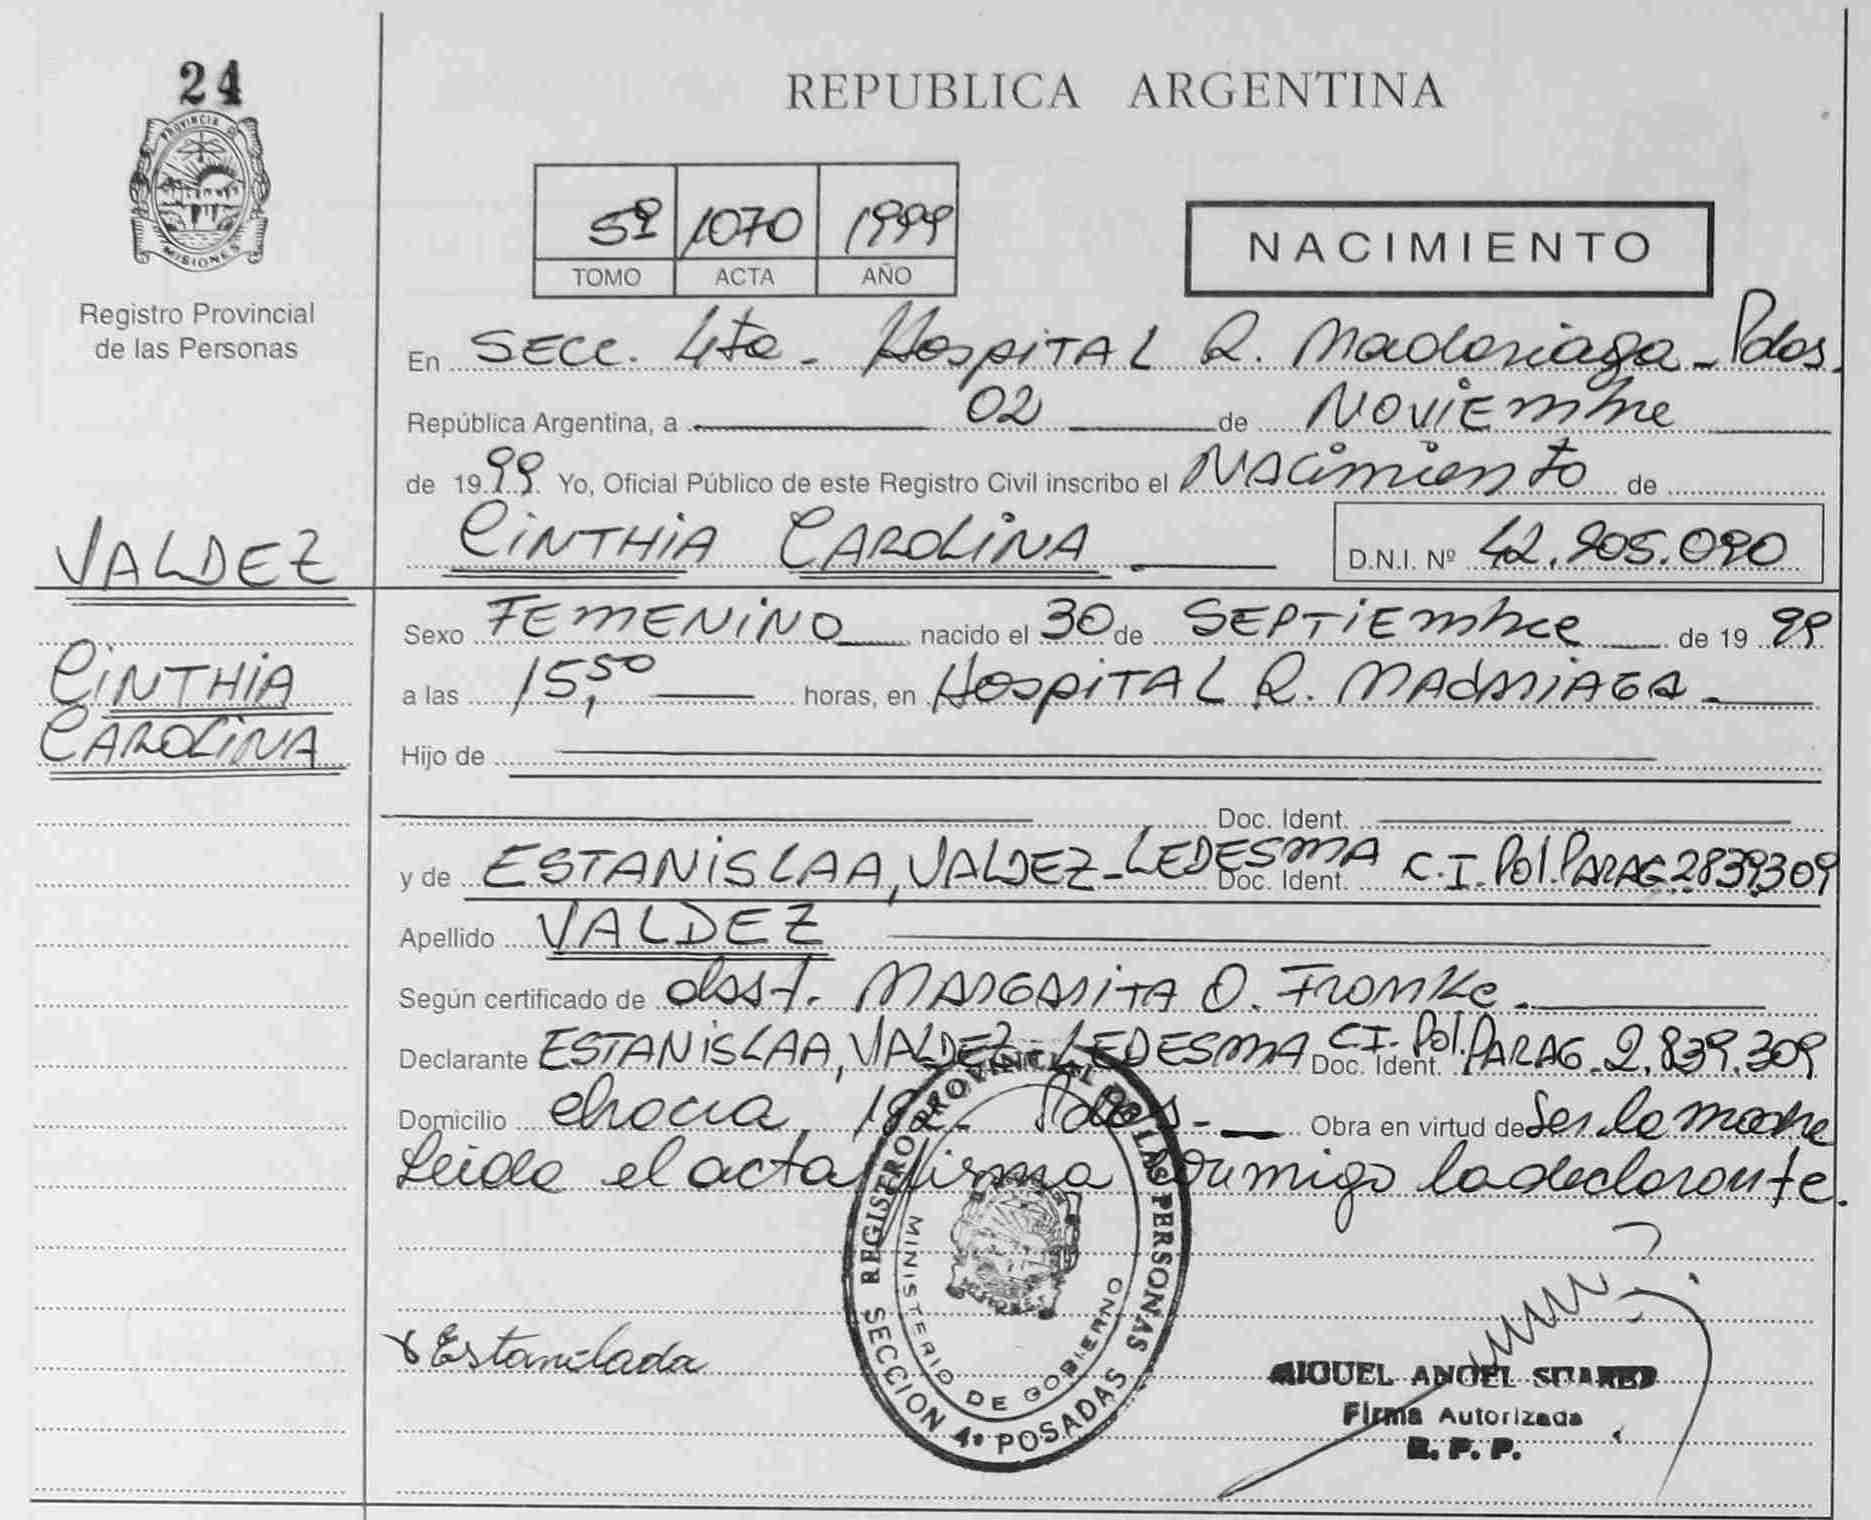 24
PROVINCIA DE
MISIONES
Registro Provincial
de las Personas
VALDEZ
CiNTHiA
CAROLiNA
REPUBLICA ARGENTINA
5º 1070 1999
TOMO ACTA AÑO
NACIMIENTO
En SECC. 4ta - HospiTAL R. Madariaga - Pdas.
República Argentina, a 02 de NOViEmbre
de 1999 Yo, Oficial Público de este Registro Civil inscribo el NAcimiento de
CiNTHiA CAROLiNA D.N.I. Nº 42.905.090
Sexo FEmENiNO nacido el 30 de SEPTiEmbre de 1999
a las 15,50 horas, en HospiTAL R. MADARiAGA -
Hijo de
Doc. Ident.
y de ESTANiSLAA, VALDEZ - LEDESMA Doc. Ident. C.I. Pol. PARAG 2839309
Apellido VALDEZ
Según certificado de obst. MARGARiTA O. FROMKe.
Declarante ESTANiSLAA, VALDEZ - LEDESMA Doc. Ident. C.I. Pol. PARAG. 2.839.309
Domicilio Pdas - Obra en virtud de Ser la madre
Leida el acta firma conmigo la declarante.
REGISTRO PROVINCIAL DE LAS PERSONAS
MINISTERIO DE GOBIERNO
SECCION 4ª POSADAS
MIGUEL ANGEL SUAREZ
Firma Autorizada
R. P. P.